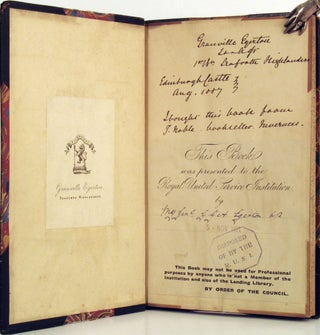 Granville Egerton,
Seaforth Highlanders.
Granville Egerton
1st Bn Seaforth Highlanders
Edinburgh Castle
Aug. 1887
I bought this book from
J. Noble bookseller Inverness.
This Book
was presented to the
Royal United Service Institution
by
Egerton CB
NOV
DISPOSED
OF BY THE
R.U.S.I.
This Book may not be used for Professional
purposes by anyone who is not a Member of the
Institution and also of the Lending Library.
BY ORDER OF THE COUNCIL.